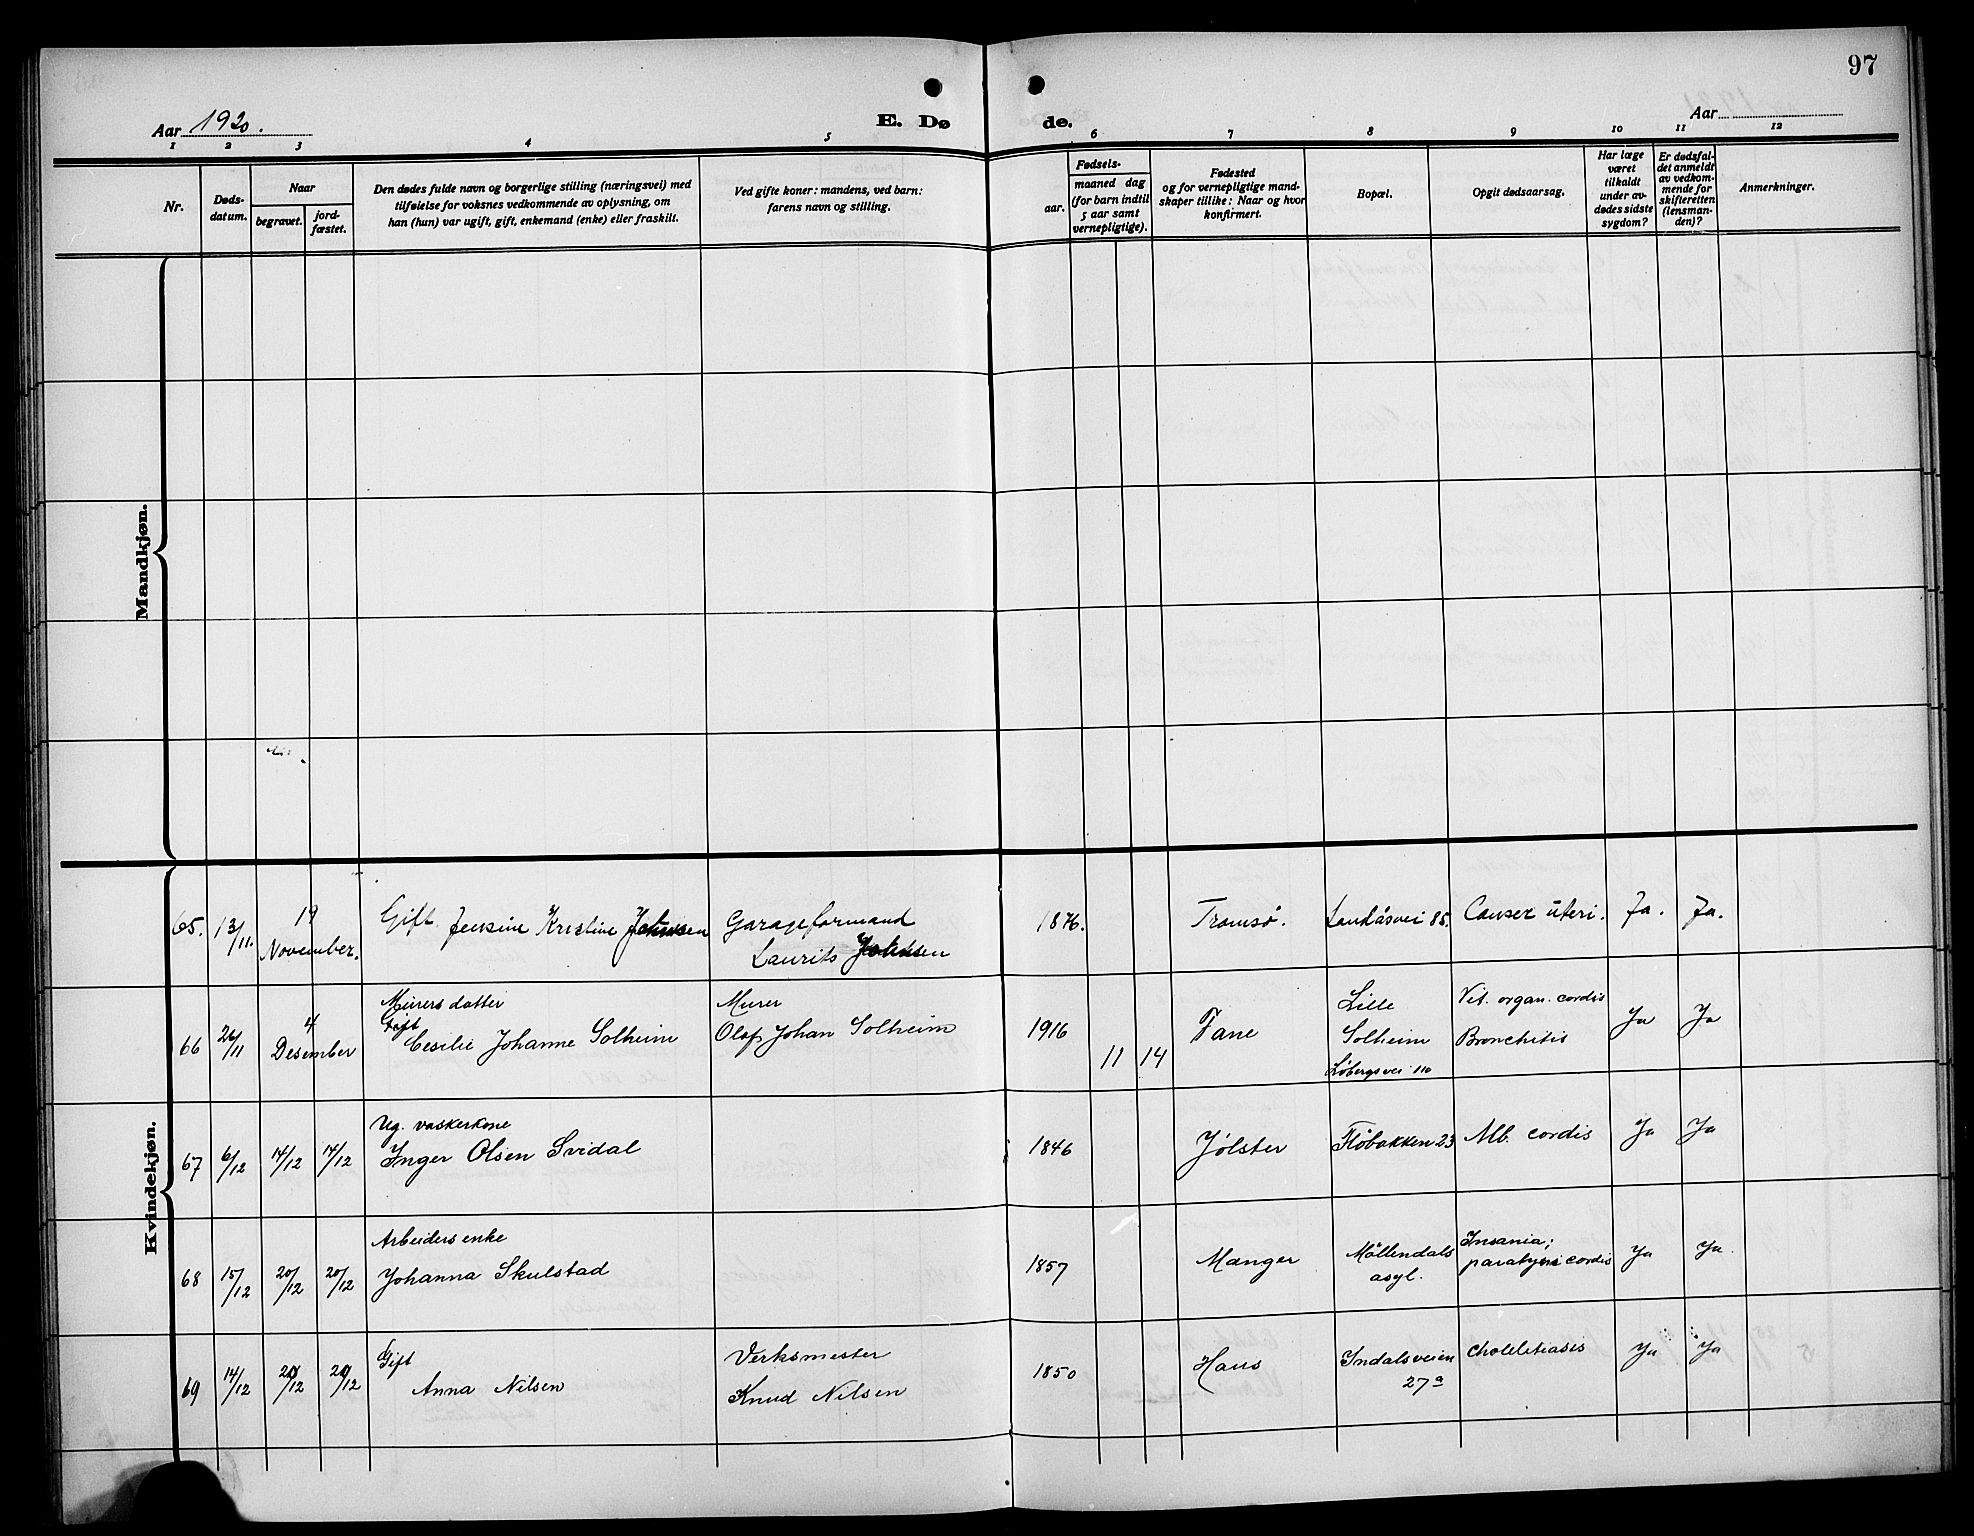 97
Aar 1920.
E. Dø
de.
Aar
1 2 3 4 5 6 7 8 9 10 11 12
Nr.
Døds-
datum.
Naar
begravet.
jord-
fæstet.
Den dødes fulde navn og borgerlige stilling (næringsvei) med
tilføielse for voksnes vedkommende av oplysning, om
han (hun) var ugift, gift, enkemand (enke) eller fraskilt.
Ved gifte koner: mandens, ved barn:
farens navn og stilling.
Fødsels-
aar.
maaned dag
(for barn indtil
5 aar samt
vernepligtige).
Fødested
og for vernepligtige mand-
skaper tillike: Naar og hvor
konfirmert.
Bopæl.
Opgit dødsaarsag.
Har læge
været
tilkaldt
under av-
dødes sidste
sygdom?
Er dødsfal-
det anmeldt
av vedkom-
mende for
skifteretten
(lensman-
den)?
Anmerkninger.
Mandkjøn.
Kvindekjøn.
65. 13/11. 19 November. Gift. Jensine Kristine Johnsen Garageformand
Laurits Johnsen 1876. Tromsø. Landåsvei 85. Cancer uteri. Ja. Ja.
66 26/11 4 Desember Murers datter
Gift
Cesilie Johanne Solheim Murer
Olaf Johan Solheim 1916 11 14 Fane Lille
Solheim
Løbergsvei 110 Vit. organ. cordis
Bronchitis Ja Ja
67 6/12 14/12 14/12 Ug. vaskerkone
Inger Olsen Svidal 1846 Jølster Fløbakken 23 Mb. cordis Ja Ja
68 15/12 20/12 20/12 Arbeiders enke
Johanna Skulstad 1857 Manger Möllendals
asyl. Insania;
paralysis cordis Ja Ja
69 14/12 20/12 20/12 Gift
Anna Nilsen Verksmester
Knud Nilsen 1850 Haus Indalsveien
27a Cholelitiasis Ja Ja